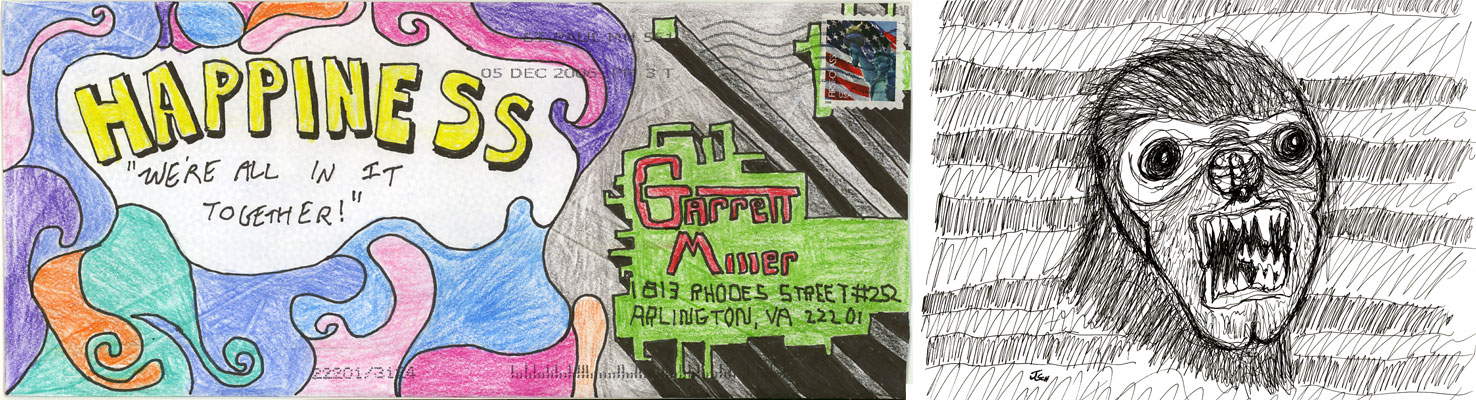 HAPPINESS
"WE'RE ALL IN IT
TOGETHER!"
05 DEC 2006 PM 3 T
FIRST-CLASS
USA
Garrett
Miller
1813 RHODES STREET #252
ARLINGTON, VA 22201
22201/3164